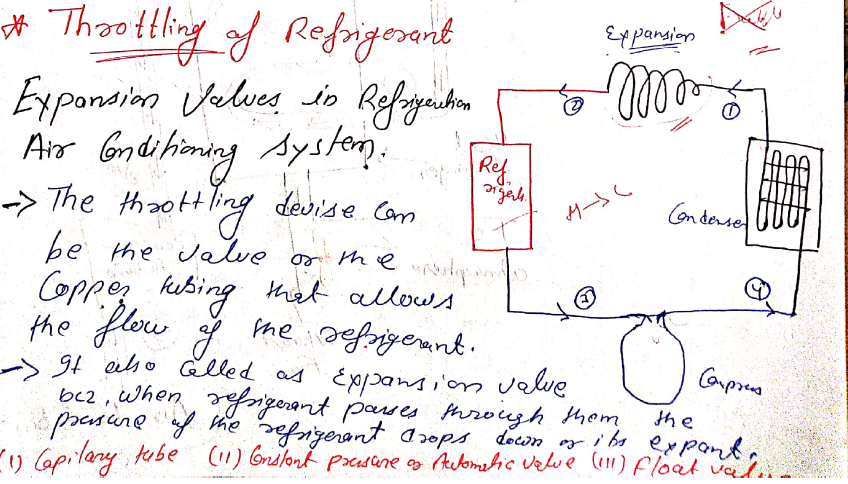 * Throttling of Refrigerant
Expansion Valves in Refrigeration
Air Conditioning System.
-> The throttling devise can
be the valve or the
Copper tubing that allows
the flow of the refrigerant.
-> It also called as expansion valve
bcz, when refrigerant passes through them the
pressure of the refrigerant drops down or its expant.
(1) Capilary tube (11) Constant pressure or Automatic valve (111) float valve
Expansion
2
1
Ref
rigerts.
H->L
Condenser
3
4
Compress